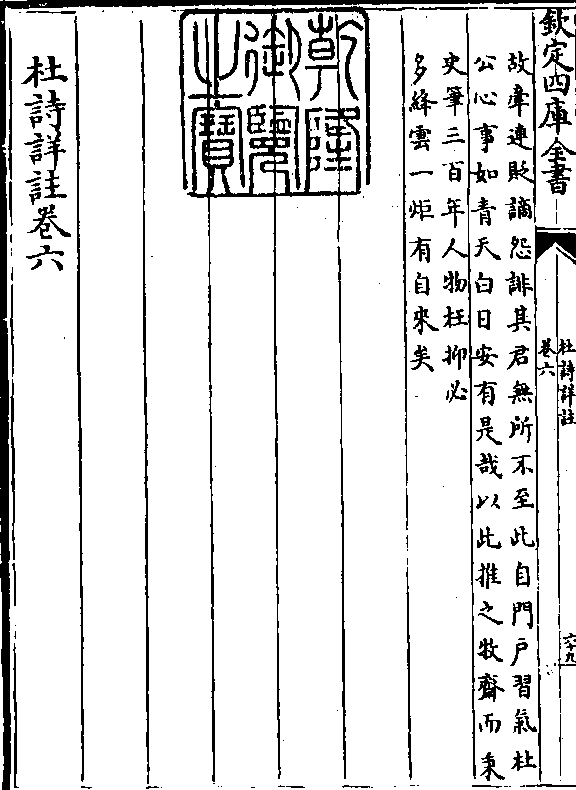 欽定四庫全書
杜詩詳註
卷六
六十九
故牽連貶謫怨誹其君無所不至此自門戶習氣杜
公心事如青天白日安有是哉以此推之牧齋而秉
史筆三百年人物枉抑必
多絳雲一炬有自來矣
乾隆
御覽
之寶
杜詩詳註卷六